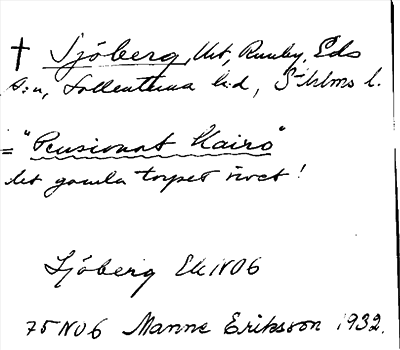 † Sjöberg, Utt, Runby, Eds
s:n, Sollentuna h:d, St-hlms l.
= "Pensionat Kairo"
det gamla torpet rivet!
Sjöberg Ek NO6
75 NO6 Manne Eriksson 1932.